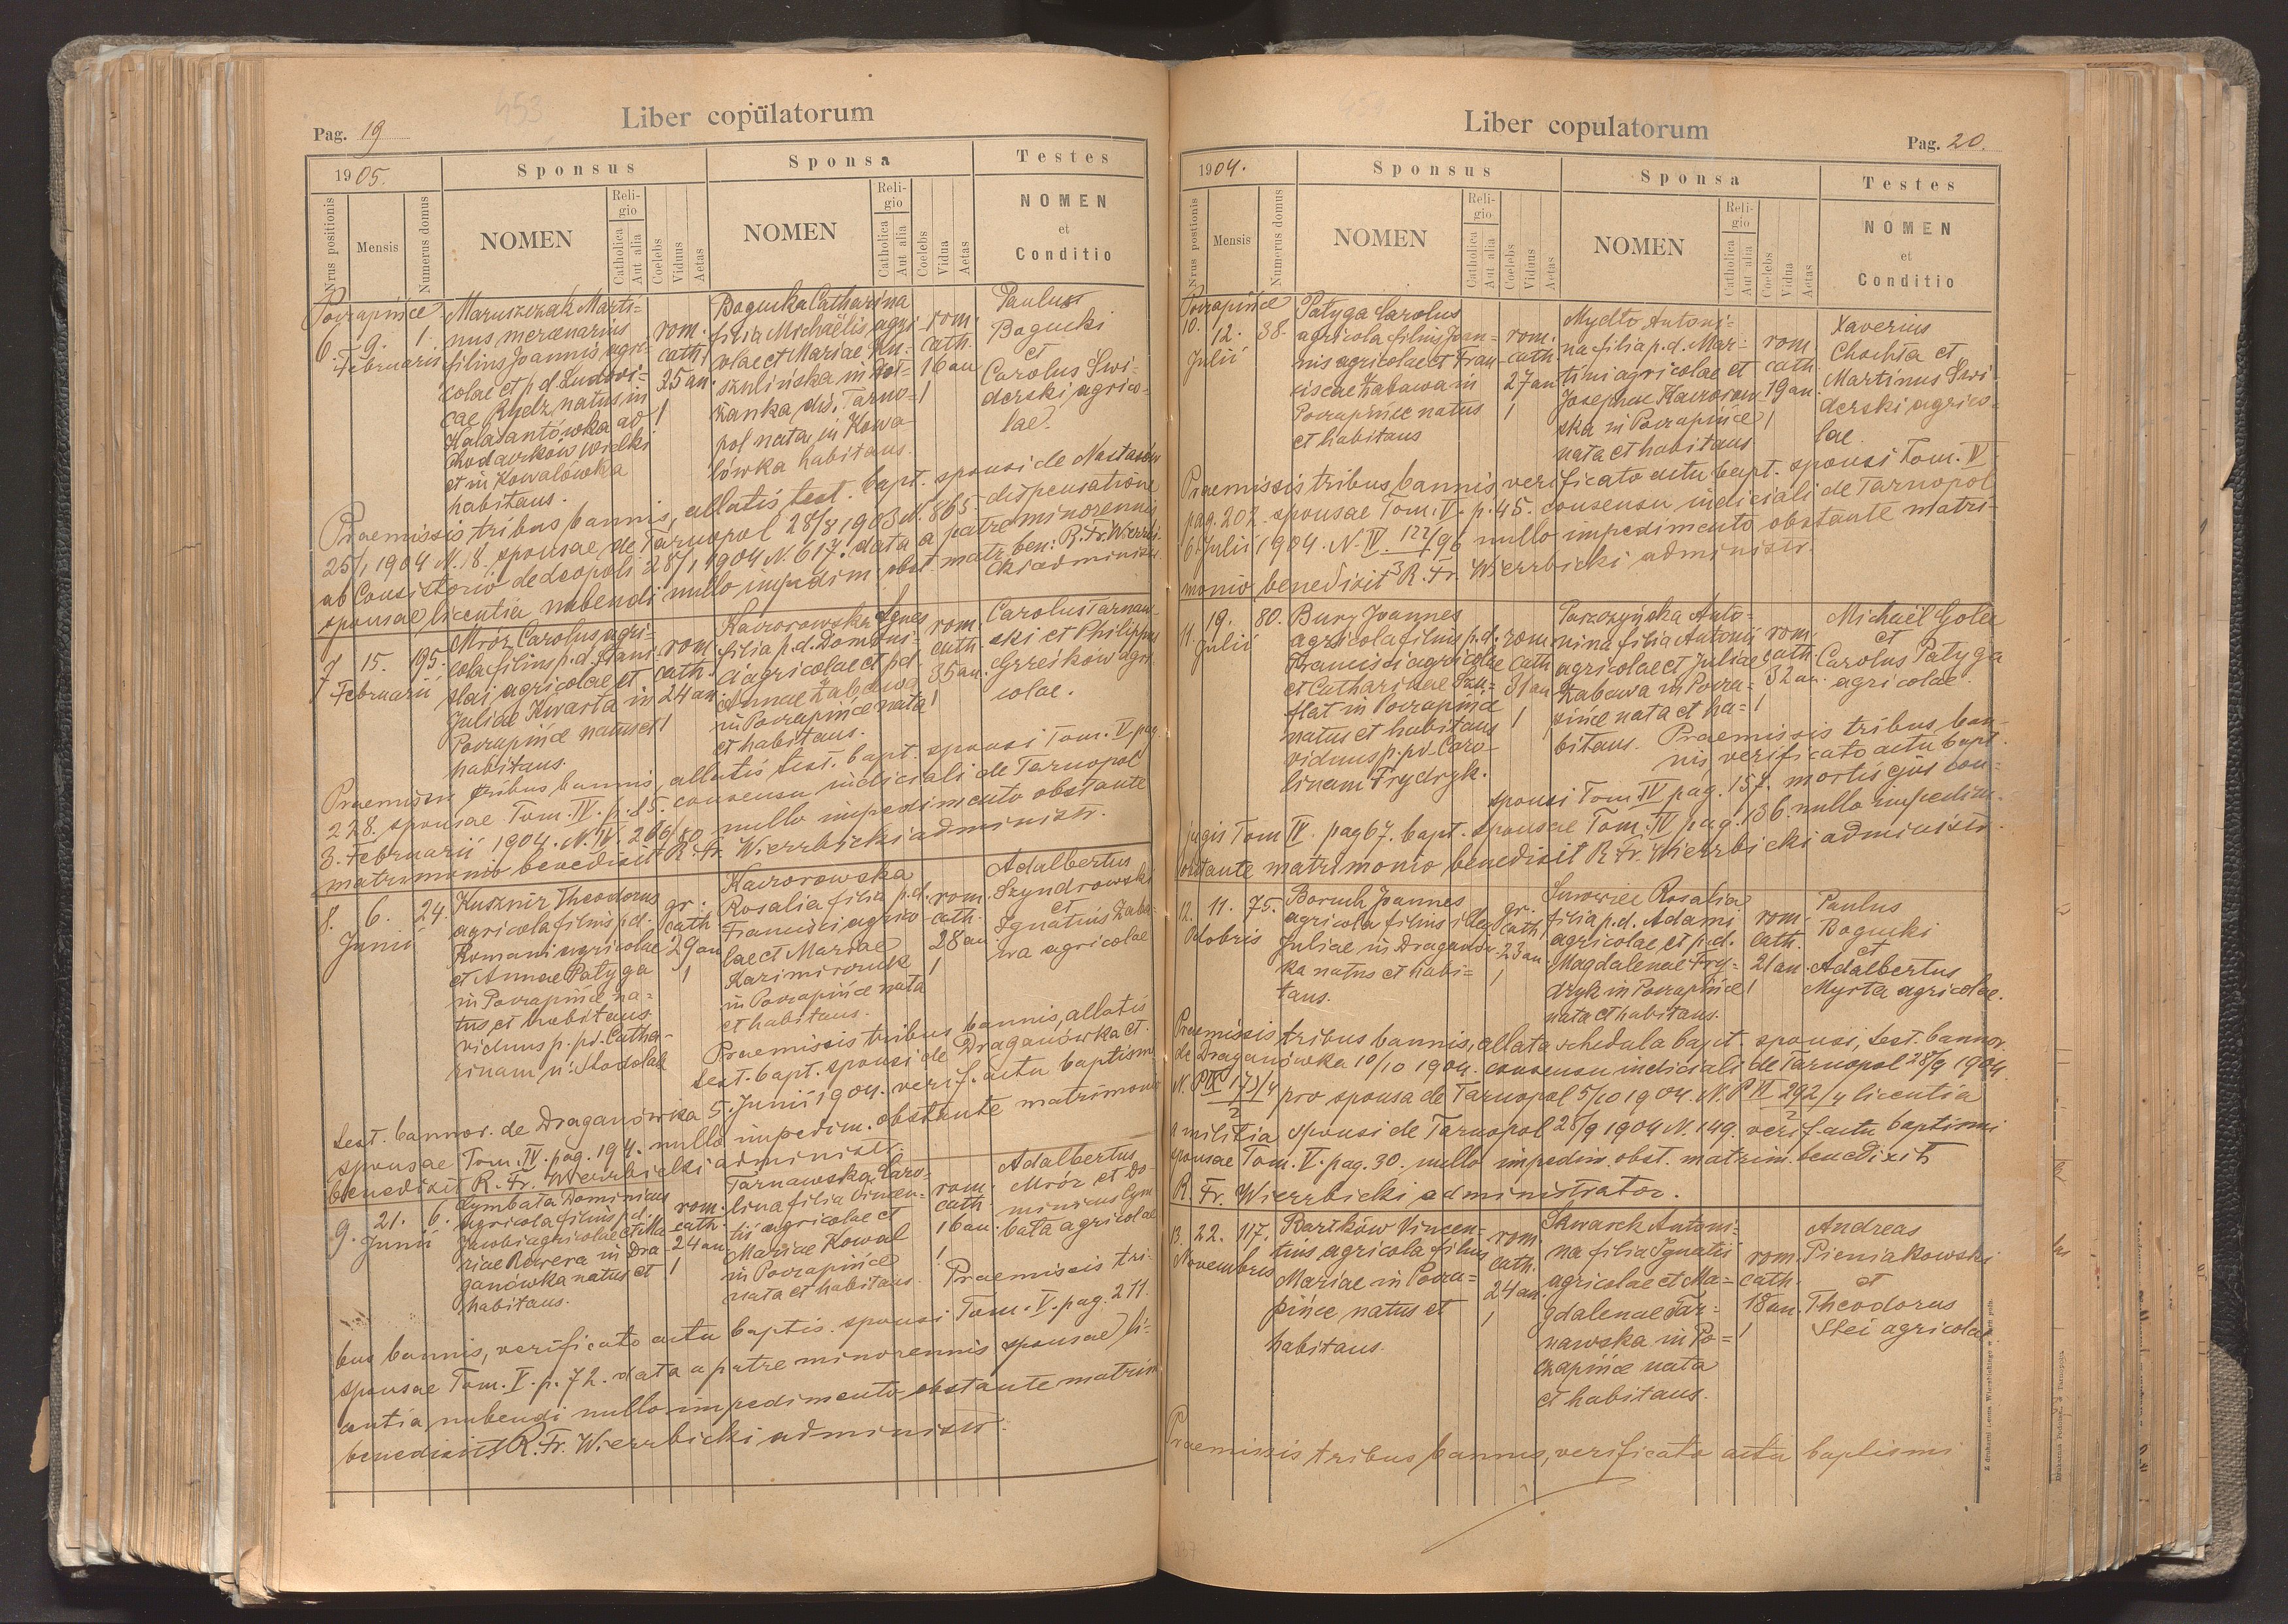 Liber copulatorum
Pag. 19
1905.
Sponsus
Sponsa
Testes
Nrus positionis
Mensis
Numerus domus
NOMEN
Religio
Catholica
Aut alia
Coelebs
Viduus
Aetas
NOMEN
Religio
Catholica
Aut alia
Coelebs
Vidua
Aetas
NOMEN
et
Conditio
Poczapińce
6. 9. 1.
Februarii
Maruszczak Marti-
nus mercenarius
filius Joannis agri-
colae et p.d. Ludovi-
cae Rydz natus in
Kalasantówka ad
Chodaczków wielki
et in Kowalówka
habitans.
rom.
cath.
25 an.
1
Bogucka Catharina
filia Michaëlis agri
colae et Mariae Ku-
szulińska in
żanka, dis. Tarno-
pol nata, in Kowa-
lówka habitans.
rom.
cath.
16 an
1
Paulus
Bogucki
et
Carolus Swi-
derski agrico-
lae.
Praemissis tribus bannis, allatis test. bapt. sponsi de Nastasów
25/1 1904 N. 18. sponsae de Tarnopol 28/8 1903 N. 865- dispensatione
ab Consistorio de Leopoli 28/1 1904 N. 617. data a patre minorennis
sponsae licentia nubendi nullo impedim. obst. matr. ben: R. Fr. Wierzbi-
cki administr.
7 15. 195.
Februarii
Mróz Carolus agri-
cola filius p.d. Stani
slai agricolae et
Juliae Kwarta in
Poczapińce natus et
habitans.
rom.
cath.
24 an
1
Kaczorowska Agnes
filia p.d. Domini-
ci agricolae et p.d.
Annae Zabawa
in Poczapińce nata
et habitans.
rom.
cath.
35 an.
1
Carolus Tarnaw-
ski et Philippus
Grześków agri
colae.
Praemissis tribus bannis, allatis test. bapt. sponsi Tom. V. pag.
228. sponsae Tom. IV. p. 85. consensu iudiciali de Tarnopol
3. Februarii 1904. N. IV. 266/80 nullo impedimento obstante
matrimonio benedixit R. Fr. Wierzbicki administr.
8. 6. 24.
Junii
Kusznir Theodorus
agricola filius p.d.
Romani agricolae
et Annae Patyga
in Poczapińce na-
tus et habitans.
viduus p. pd. Catha-
rinam n: Stodolak
gr.
cath
29 an
1
Kaczorowska
Rosalia filia p.d.
Francisci agrico-
lae et Mariae
Kazimirczuk
in Poczapińce nata
et habitans.
rom.
cath.
28 an
1
Adalbertus
Szyndrowski
et
Ignatius Zaba-
wa agricolae
Praemissis tribus bannis, allatis
test. bapt. sponsi de Draganówka et
test. bannor. de Draganówka 5. Junii 1904. verif. actu baptism.
sponsae Tom. IV. pag. 194. nullo impedim. obstante matrimonio
benedixit R. Fr. Wierzbicki administr.
9. 21. 6.
Junii
Cymbała Dominicus
agricola filius p.d.
Jacobi agricolae et Ma
riae Rewera in Dra-
ganówka natus et
habitans.
rom.
cath.
24 an
1
Tarnawska Caro-
lina filia Vincen-
tii agricolae et
Mariae Kowal
in Poczapińce
nata et habitans.
rom.
cath.
16 an.
1
Adalbertus
Mróz et Do-
minicus Cym
bała agricolae
Praemissis tri-
bus bannis, verificato actu baptis. sponsi Tom. V. pag. 211.
sponsae Tom. V. p. 72. data a patre minorennis sponsae li-
centia nubendi nullo impedimento obstante matrim
benedixit R. Fr. Wierzbicki administr.
Liber copulatorum
Pag. 20.
1904.
Sponsus
Sponsa
Testes
Nrus positionis
Mensis
Numerus domus
NOMEN
Religio
Catholica
Aut alia
Coelebs
Viduus
Aetas
NOMEN
Religio
Catholica
Aut alia
Coelebs
Vidua
Aetas
NOMEN
et
Conditio
Poczapińce
10. 12. 38.
Julii
Patyga Carolus
agricola filius Joan-
nis agricolae et Fran
ciscae Zabawa in
Poczapińce natus
et habitans
rom.
cath.
27 an
1
Mydło Antoni-
na filia p.d. Mar-
tini agricolae et
Josephae Kaczorow
ska in Poczapińce
nata et habitans
rom.
cath.
19 an.
1
Xaverius
Chochła et
Martinus Swi
derski agrico-
lae
Praemissis tribus bannis verificato actu bapt. sponsi Tom. IV
pag. 202. sponsae Tom. V. p. 45. consensu iudiciali de Tarnopol
6 Julii 1904. N. IV. 122/96 nullo impedimento obstante matri-
3
monio benedixit R. Fr. Wierzbicki administr.
11. 19. 80.
Julii
Bury Joannes
agricola filius p.d.
Francisci agricolae
et Catharinae Szu-
flat in Poczapińce
natus et habitans
viduus p. pd. Caro-
linam Frydryk.
rom
cath
31 an
1
Parczyńska Anto-
nina filia Antonii
agricolae et Juliae
Zabawa in Pocza-
pińce nata et ha-
bitans.
rom.
cath.
32 an.
1
Michaël Golec
et
Carolus Patyga
agricolae.
Praemissis tribus ban-
nis verificato actu bapt.
sponsi Tom. IV pag. 157. mortis ejus con-
jugis Tom IV. pag 67. bapt. sponsae Tom. IV pag. 136. nullo impedim.
obstante matrimonio benedixit R. Fr. Wierzbicki administr.
12. 11. 75.
Octobris
Boruch Joannes
agricola filius illeg
Juliae in Draganów-
ka natus et habi-
tans.
gr.
cath.
23 an
1
Surowiec Rosalia
filia p.d. Adami
agricolae et p.d.
Magdalenae Fry-
dryk in Poczapińce
nata et habitans.
rom.
cath.
21 an.
1
Paulus
Bogucki
et
Adalbertus
Myrta agricolae.
Praemissis tribus bannis, allata schedula bapt. sponsi, test. bannor.
de Draganówka 10/10 1904. consensu iudiciali de Tarnopol 28/9 1904
N. P IX 173/4 pro sponsa de Tarnopol 5/10 1904. N. P VI 292/4 licentia
2 2
a militia sponsi de Tarnopol 28/9 1904 N. 149. verif. actu baptismi
sponsae Tom. V. pag. 30. nullo impedim. obst. matrim. benedixit
R. Fr. Wierzbicki administrator.
13. 22. 117.
Novembris
Bartków Vincen-
tius agricola filius
Mariae in Pocza-
pińce natus et
habitans.
rom.
cath.
24 an.
1
Skwarek Antoni-
na filia Ignatii
agricolae et Ma-
gdalenae Tar-
nawska in Po-
czapińce nata
et habitans.
rom.
cath.
18 an.
1
Andreas
Pieniakowski
et
Theodorus
Stei agricolae
Praemissis tribus bannis, verificato actu baptismi
Z drukarni Leona Wierzbickiego w Tarnopolu.